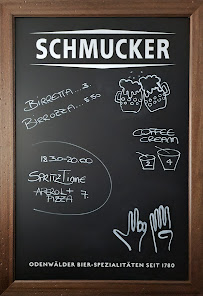 SCHMUCKER
BIRRETTA...3.
BIRROZZA...5.50
COFFEE
CREAM
2 4
18.30-20.00
SPRITZ TIME
APEROL +
PIZZA 7.
ODENWÄLDER BIER-SPEZIALITÄTEN SEIT 1780